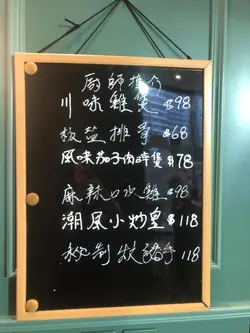 廚師推介
川味雞煲 $98
椒鹽排骨 $68
風味茄子肉碎煲 $78
麻辣口水雞 $98
潮風小炒皇 $118
秘制炆豬手 118